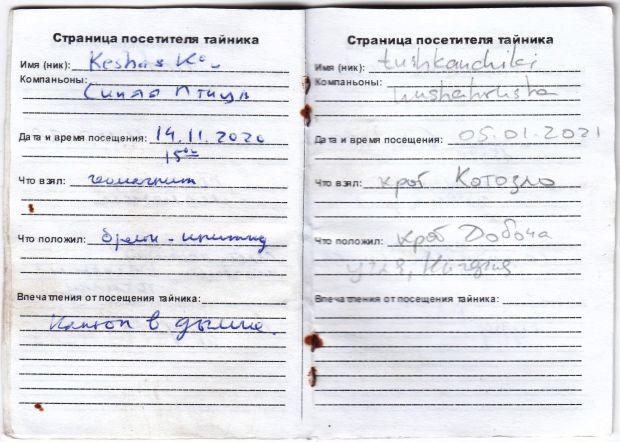 Страница посетителя тайника
Имя (ник): Kesha &
Компаньоны:
Синяя Птица
Дата и время посещения: 14.11.2020
15⁰⁰
Что взял: геомагнит
Что положил: брелок-
Впечатления от посещения тайника:
в дымке.
Страница посетителя тайника
Имя (ник): tushkanchiki
Компаньоны:
Дата и время посещения: 05.01.2021
Что взял: крот Котозло
Что положил: крот Добоча
Впечатления от посещения тайника: